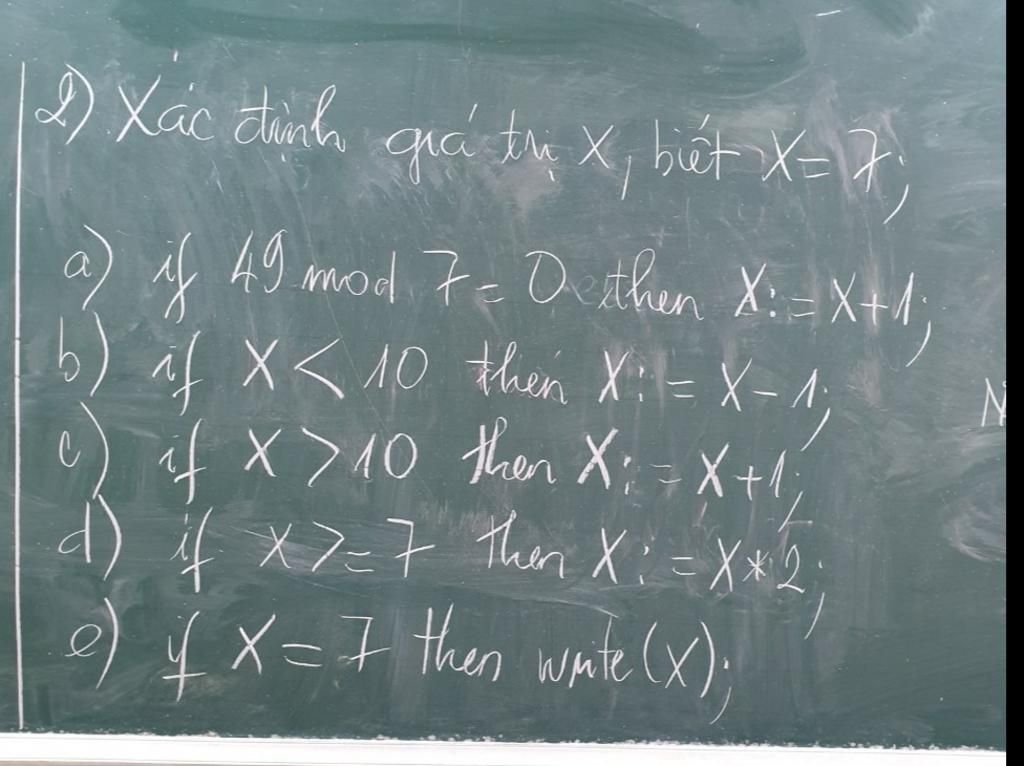 2) Xác định giá trị X, biết X = 7;
a) if 49 mod 7 = 0 then X := X+1;
b) if X < 10 then X := X - 1;
c) if X > 10 then X := X + 1;
d) if X >= 7 then X := X * 2;
e) if X = 7 then write(X);